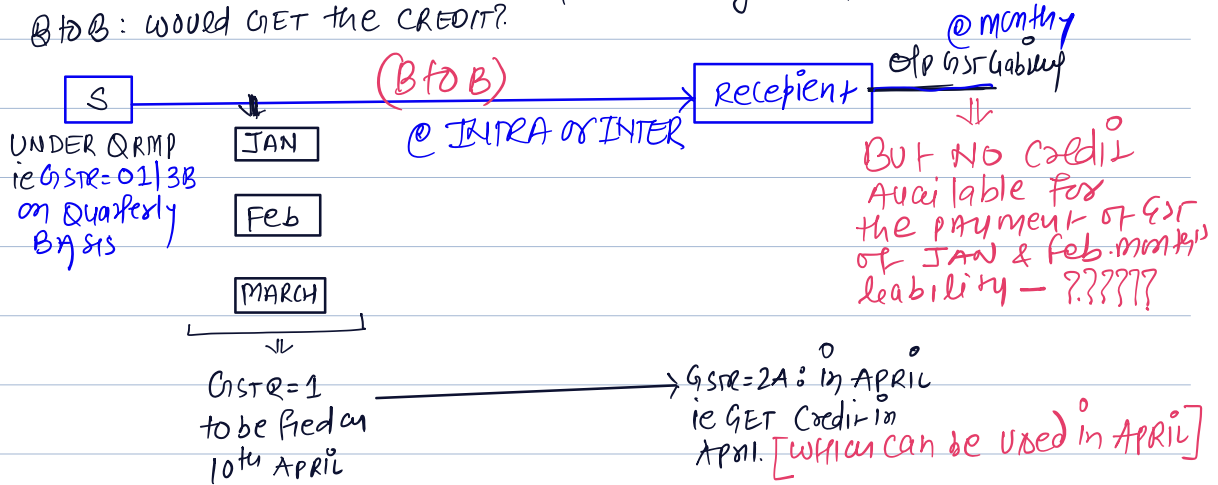 BtoB: WOULD GET the CREDIT?
@ monthy
O/P GST Liability
(BtoB)
S
Recepient
@ INTRA or INTER
UNDER QRMP
ie GSTR=01/3B
on Quarterly
BASIS
JAN
Feb
MARCH
But NO Credit
Available for
the payment of GST
of JAN & Feb. months
leability - ??????
GSTR=1
to be filed on
10th APRIL
GSTR=2A: in APRIL
ie GET Credit in
April. [which can be used in APRIL]